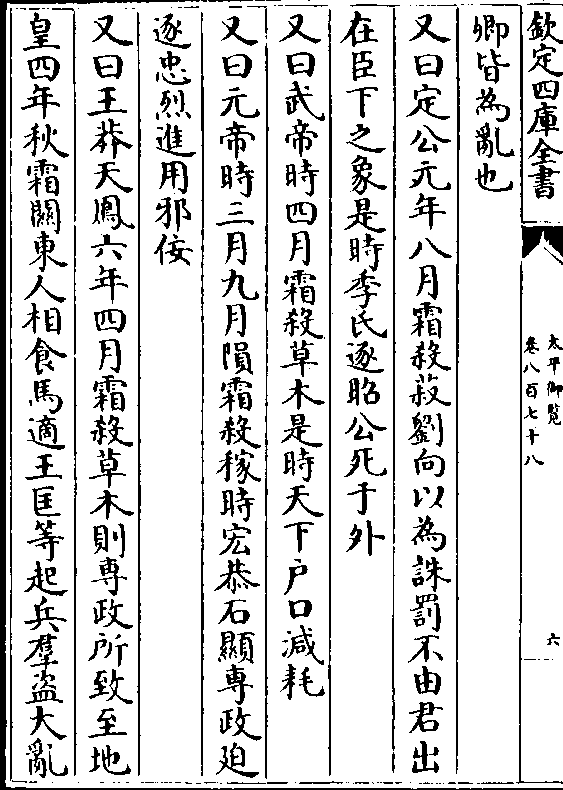 欽定四庫全書
太平御覧
卷八百七十八
六
卿皆為亂也
又曰定公元年八月霜殺菽劉向以為誅罰不由君出
在臣下之象是時季氏逐昭公死于外
又曰武帝時四月霜殺草木是時天下戶口減耗
又曰元帝時三月九月隕霜殺稼時宏恭石顯専政廹
逐忠烈進用邪佞
又曰王莽天鳳六年四月霜殺草木則専政所致至地
皇四年秋霜關東人相食馬適王匡等起兵羣盗大亂